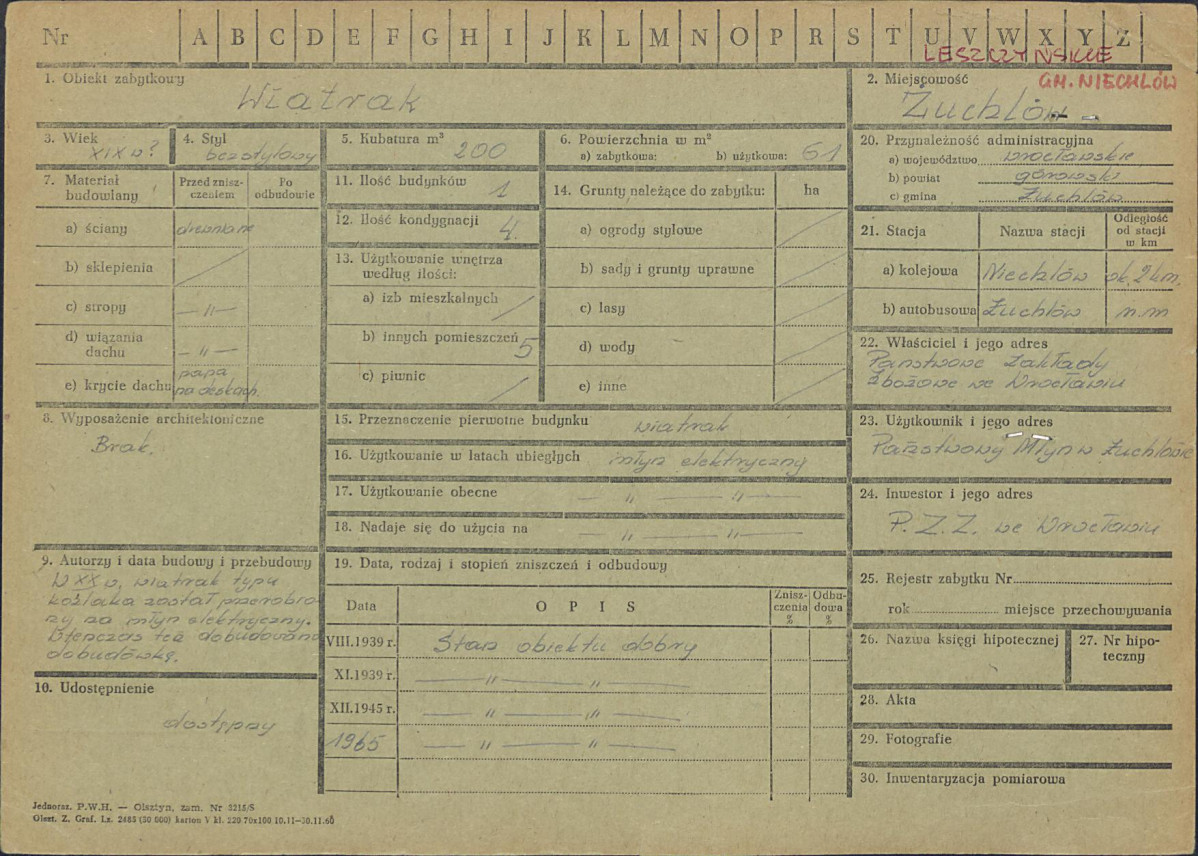 Nr A B C D E F G H I J K L M N O P R S T U V W X Y Z
LESZCZYŃSKIE
1. Obiekt zabytkowy
Wiatrak
2. Miejscowość
GM. NIECHLÓW
Żuchlów
3. Wiek
XIX w?
4. Styl
bezstylowy
5. Kubatura m³
200
6. Powierzchnia w m²
a) zabytkowa: b) użytkowa: 61
7. Materiał budowlany
Przed zniszczeniem
Po odbudowie
a) ściany drewniane
b) sklepienia
c) stropy — " —
d) wiązania dachu — " —
e) krycie dachu papa na deskach.
11. Ilość budynków 1
12. Ilość kondygnacji 4.
13. Użytkowanie wnętrza według ilości:
a) izb mieszkalnych
b) innych pomieszczeń 5
c) piwnic
14. Grunty należące do zabytku: ha
a) ogrody stylowe
b) sady i grunty uprawne
c) lasy
d) wody
e) inne
20. Przynależność administracyjna
a) województwo wrocławskie
b) powiat górowski
c) gmina Żuchlów
21. Stacja
Nazwa stacji
Odległość od stacji w km
a) kolejowa Niechlów ok. 2 km.
b) autobusowa Żuchlów n.m
22. Właściciel i jego adres
Państwowe Zakłady
Zbożowe we Wrocławiu
8. Wyposażenie architektoniczne
Brak.
15. Przeznaczenie pierwotne budynku wiatrak
16. Użytkowanie w latach ubiegłych młyn elektryczny
17. Użytkowanie obecne — " — " —
18. Nadaje się do użycia na — " — " —
23. Użytkownik i jego adres
Państwowy Młyn w Żuchlowie
24. Inwestor i jego adres
P. Z. Z. we Wrocławiu
9. Autorzy i data budowy i przebudowy
W XX w. wiatrak typu
koźlaka został przerobio-
ny na młyn elektryczny.
Wtenczas też dobudowano
dobudówkę.
19. Data, rodzaj i stopień zniszczeń i odbudowy
Data
O P I S
Zniszczenia %
Odbudowa %
VIII.1939 r. Stan obiektu dobry
XI.1939 r. — " — " —
XII.1945 r. — " — " —
1965 — " — " —
25. Rejestr zabytku Nr
rok miejsce przechowywania
26. Nazwa księgi hipotecznej
27. Nr hipoteczny
10. Udostępnienie
dostępny
28. Akta
29. Fotografie
30. Inwentaryzacja pomiarowa
Jednoraz. P.W.H. — Olsztyn, zam. Nr 3215/S
Olszt. Z. Graf. Lz. 2485 (50 000) karton V kl. 220 70x100 10.11—30.11.60